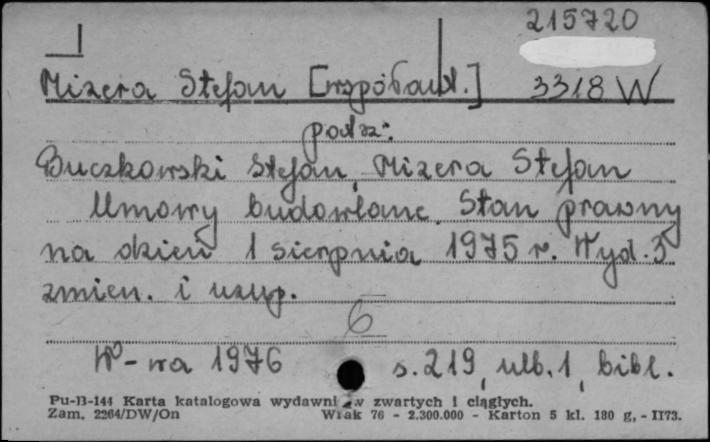 215720
Mizera Stefan [współaut.] 3318 W
patrz:
Buczkowski Stefan, Mizera Stefan
Umowy budowlane. Stan prawny
na dzień 1 sierpnia 1975 r. Wyd. 3
zmien. i uzup.
6
W-wa 1976 s. 219, nlb. 1, bibl.
Pu-B-144 Karta katalogowa wydawni w zwartych i ciągłych.
Zam. 2264/DW/On Wrak 76 - 2.300.000 - Karton 5 kl. 180 g, - II73.